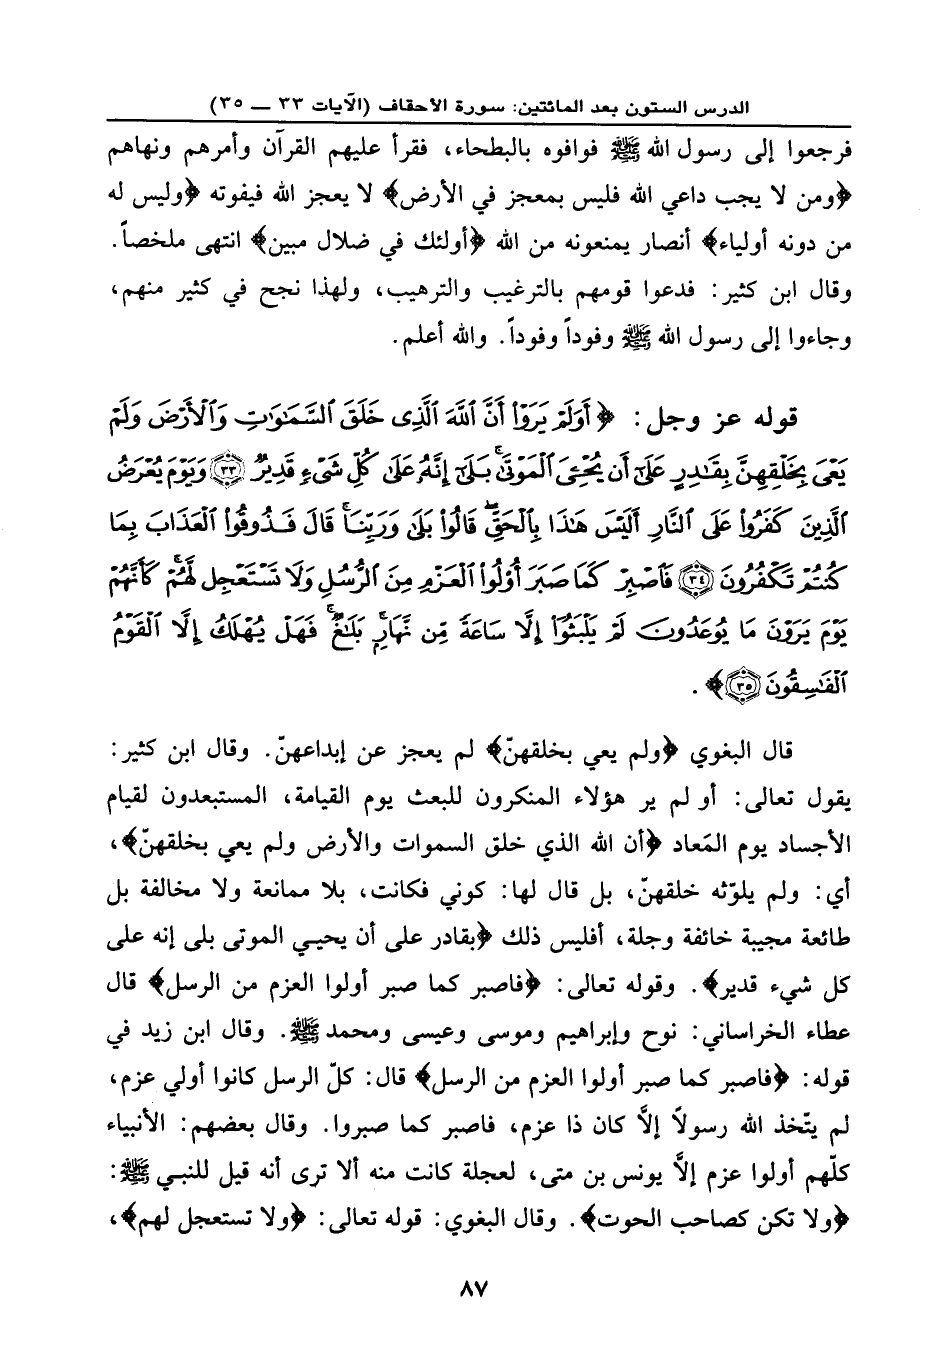 الدرس الستون بعد المائتين: سورة الأحقاف (الآيات ٣٣ — ٣٥)
فرجعوا إلى رسول الله ﷺ فوافوه بالبطحاء، فقرأ عليهم القرآن وأمرهم ونهاهم
﴿ومن لا يجب داعي الله فليس بمعجز في الأرض﴾ لا يعجز الله فيفوته ﴿وليس له
من دونه أولياء﴾ أنصار يمنعونه من الله ﴿أولئك في ضلال مبين﴾ انتهى ملخصاً.
وقال ابن كثير: فدعوا قومهم بالترغيب والترهيب، ولهذا نجح في كثير منهم،
وجاءوا إلى رسول الله ﷺ وفوداً وفوداً. والله أعلم.
قوله عز وجل: ﴿أَوَلَمْ يَرَوْا۟ أَنَّ ٱللَّهَ ٱلَّذِى خَلَقَ ٱلسَّمَٰوَٰتِ وَٱلْأَرْضَ وَلَمْ
يَعْىَ بِخَلْقِهِنَّ بِقَٰدِرٍ عَلَىٰٓ أَن يُحْۦِىَ ٱلْمَوْتَىٰ ۚ بَلَىٰٓ إِنَّهُۥ عَلَىٰ كُلِّ شَىْءٍ قَدِيرٌ ﴿٣٣﴾ وَيَوْمَ يُعْرَضُ
ٱلَّذِينَ كَفَرُوا۟ عَلَى ٱلنَّارِ أَلَيْسَ هَٰذَا بِٱلْحَقِّ ۖ قَالُوا۟ بَلَىٰ وَرَبِّنَا ۚ قَالَ فَذُوقُوا۟ ٱلْعَذَابَ بِمَا
كُنتُمْ تَكْفُرُونَ ﴿٣٤﴾ فَٱصْبِرْ كَمَا صَبَرَ أُو۟لُوا۟ ٱلْعَزْمِ مِنَ ٱلرُّسُلِ وَلَا تَسْتَعْجِل لَّهُمْ ۚ كَأَنَّهُمْ
يَوْمَ يَرَوْنَ مَا يُوعَدُونَ لَمْ يَلْبَثُوٓا۟ إِلَّا سَاعَةً مِّن نَّهَارٍۭ ۚ بَلَٰغٌ ۚ فَهَلْ يُهْلَكُ إِلَّا ٱلْقَوْمُ
ٱلْفَٰسِقُونَ ﴿٣٥﴾﴾.
قال البغوي ﴿ولم يعي بخلقهنّ﴾ لم يعجز عن إبداعهنّ. وقال ابن كثير:
يقول تعالى: أو لم ير هؤلاء المنكرون للبعث يوم القيامة، المستبعدون لقيام
الأجساد يوم المَعاد ﴿أن الله الذي خلق السموات والأرض ولم يعي بخلقهنّ﴾،
أي: ولم يلوّثه خلقهنّ، بل قال لها: كوني فكانت، بلا ممانعة ولا مخالفة بل
طائعة مجيبة خائفة وجلة، أفليس ذلك ﴿بقادر على أن يحيي الموتى بلى إنه على
كل شيء قدير﴾. وقوله تعالى: ﴿فاصبر كما صبر أولوا العزم من الرسل﴾ قال
عطاء الخراساني: نوح وإبراهيم وموسى وعيسى ومحمد ﷺ. وقال ابن زيد في
قوله: ﴿فاصبر كما صبر أولوا العزم من الرسل﴾ قال: كلّ الرسل كانوا أولي عزم،
لم يتّخذ الله رسولاً إلاَّ كان ذا عزم، فاصبر كما صبروا. وقال بعضهم: الأنبياء
كلّهم أولوا عزم إلاَّ يونس بن متى، لعجلة كانت منه ألا ترى أنه قيل للنبي ﷺ:
﴿ولا تكن كصاحب الحوت﴾. وقال البغوي: قوله تعالى: ﴿ولا تستعجل لهم﴾،
٨٧